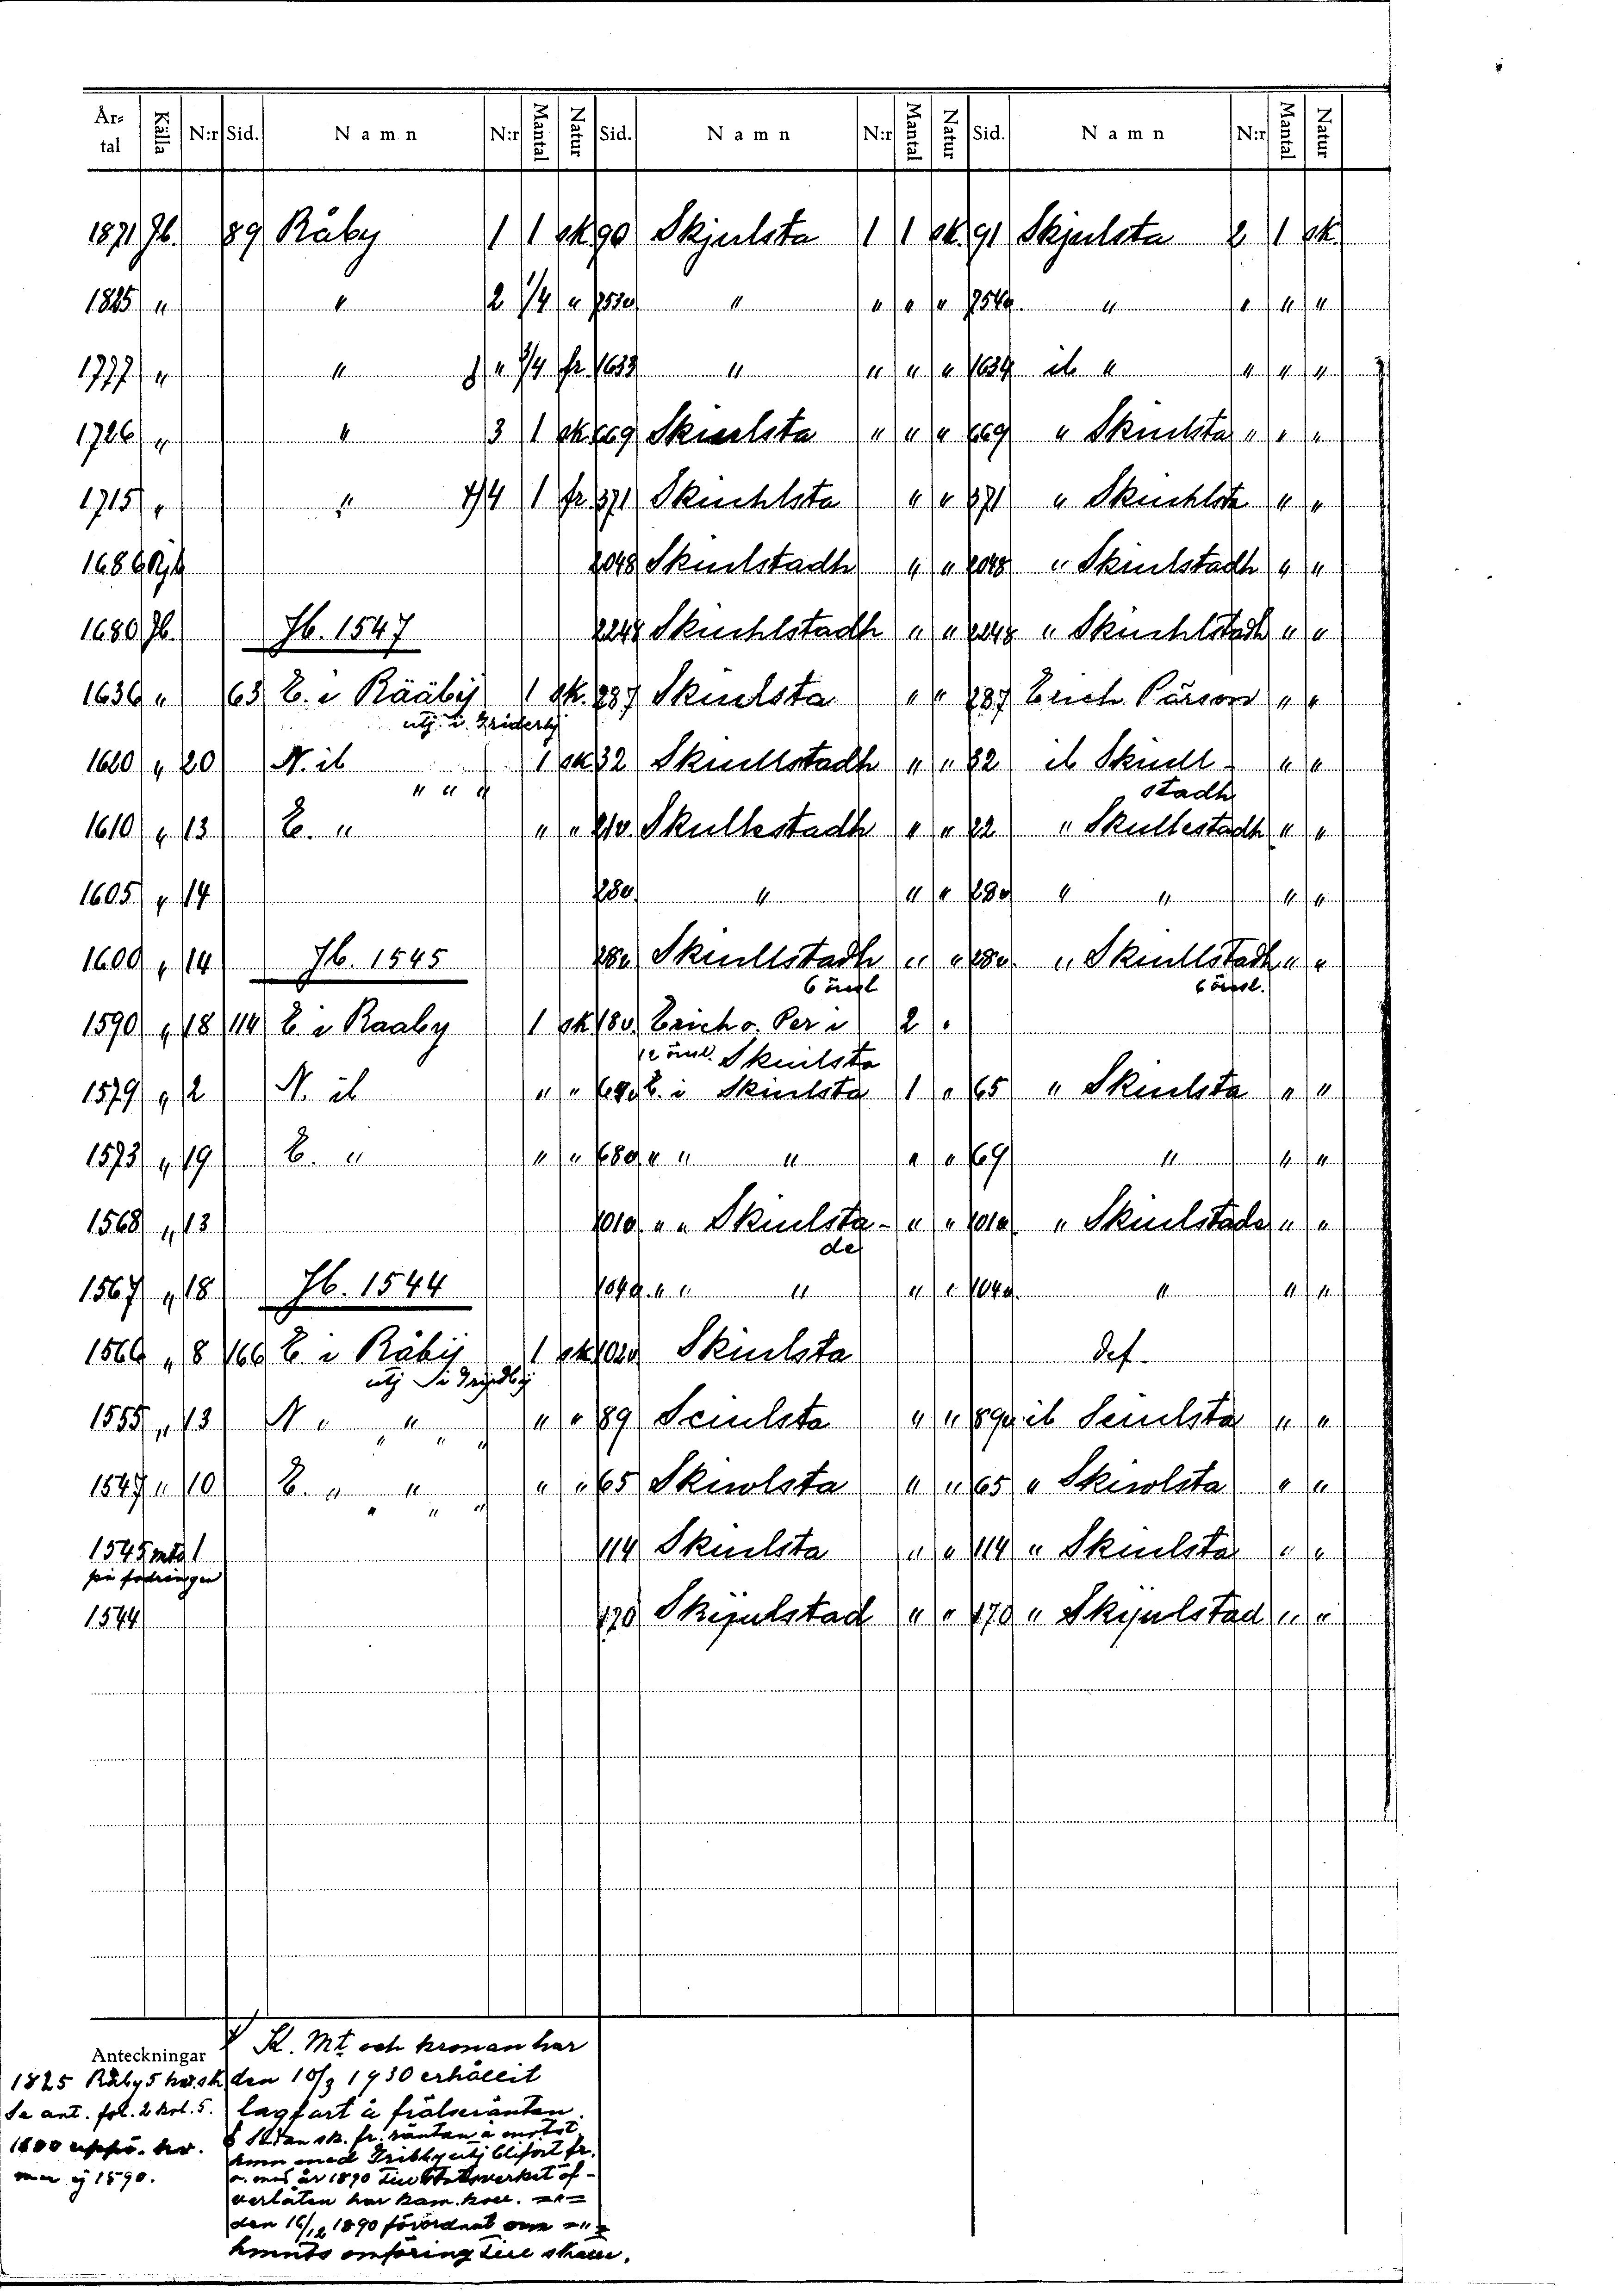 År-tal Källa N:r Sid. Namn N:r Mantal Natur Sid. Namn N:r Mantal Natur Sid. Namn N:r Mantal Natur
1871 Jb. 89 Råby 1 1 sk. 90 Skjulsta 1 1 sk. 91 Skjulsta 2 1 sk.
1825 " " 2 1/4 " 753a " " " " 754a " " " "
1777 " " " 3/4 fr. 1633 " " " " 1634 ib " " " "
1726 " " 3 1 sk. 669 Skiulsta " " " 669 " Skiulsta " " "
1715 " " 1 fr. 371 Skiuhlsta " " 371 " Skiuhlsta " "
1686 2048 Skiulstadh " " 2048 " Skiulstadh " "
1680 Jb. Jb. 1547 2248 Skiuhlstadh " " 2248 " Skiuhlstadh " "
1636 " 63 E. i Rääbÿ 1 sk. 237 Skiulsta " " 237 Erich Pärson " "
utj. i
1620 " 20 N. ib 1 sk. 32 Skiullstadh " " 32 ib Skiull-
" " " stadh " "
1610 " 13 E. " " " 21v. Skullestadh " " 22 " Skullestadh " "
1605 " 14 28a " " " 28a " " " "
1600 " 14 Jb. 1545 28a Skiullstadh " " 28a " Skiullstadh " "
6 öresl. 6 öresl.
1590 " 18 114 E i Raaby 1 sk. 18v. Erich o. Per i 2 "
Skuilsta
1579 " 2 N. ib " " 64v E. i Skiulsta 1 " 65 " Skiulsta " "
1573 " 19 E. " " " 68v " " " " " 69 " " "
1568 " 13 101a " " Skiulsta- " " 101a " Skiulstade " "
de
1567 " 18 Jb. 1544 104a " " " " " 104a " " "
1566 " 8 166 E i Råbij 1 sk. 102v Skiulsta def.
utj
1555 " 13 N " " " " 89 Sciulsta " " 89v ib Sciulsta " "
" " "
1547 " 10 E. " " " " 65 Skiwolsta " " 65 " Skiwolsta " "
" " "
1545 1 114 Skiulsta " " 114 " Skiulsta " "
1544 170 Skijulstad " " 170 " Skijulstad " "
Anteckningar
1825 Råby 5
Se ant. fol. 2 kol. 5.
1600
men ej 1590.
K. Mt och kronan har
den 10/3 1930 erhållit
lagfart å frälseräntan.
Sedan sk. fr. räntan å motst.
hmn med utj blifvit fr.
o. med år 1890 till Statsverket öf-
verlåten har kam. koll. -"-
den 16/12 1890 förordnat om -"-
hmnts omföring till skatte.